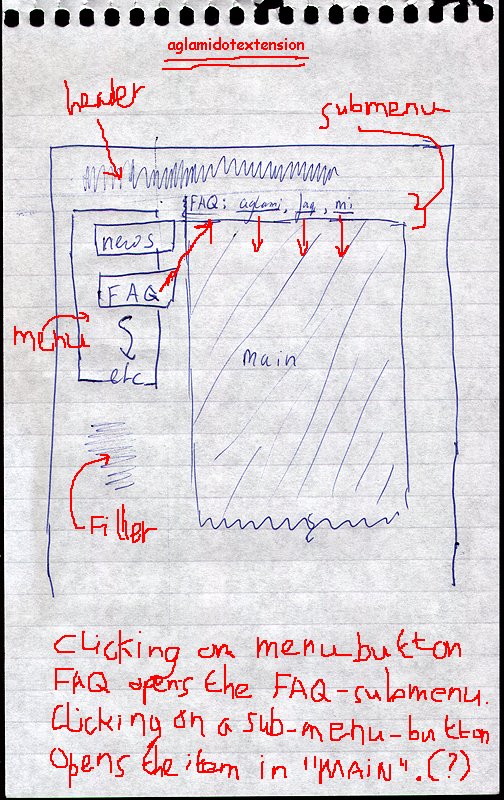 aglamidotextension
header
submenu
FAQ: aglami, faq, mi
news
FAQ
menu
main
etc
Filler
Clicking on menu button
FAQ opens the FAQ-submenu.
Clicking on a sub-menu-button
Opens the item in "MAIN".(?)